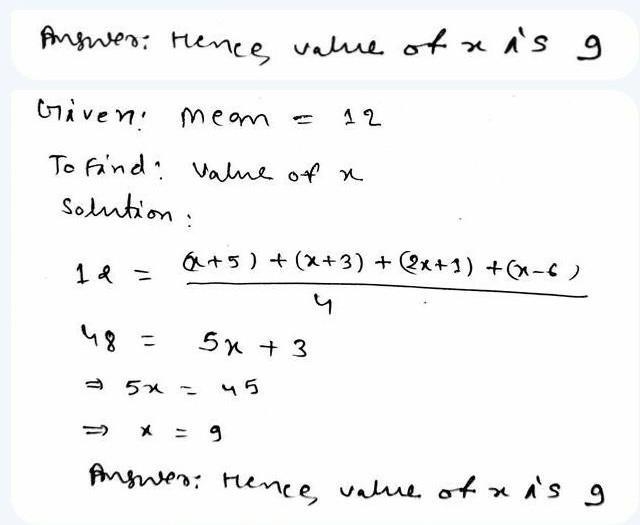 Answer: Hence, value of x is 9
Given: mean = 12
To Find: value of x
Solution:
12 = (x+5) + (x+3) + (2x+1) + (x-6)
4
48 = 5x + 3
⇒ 5x = 45
⇒ x = 9
Answer: Hence, value of x is 9